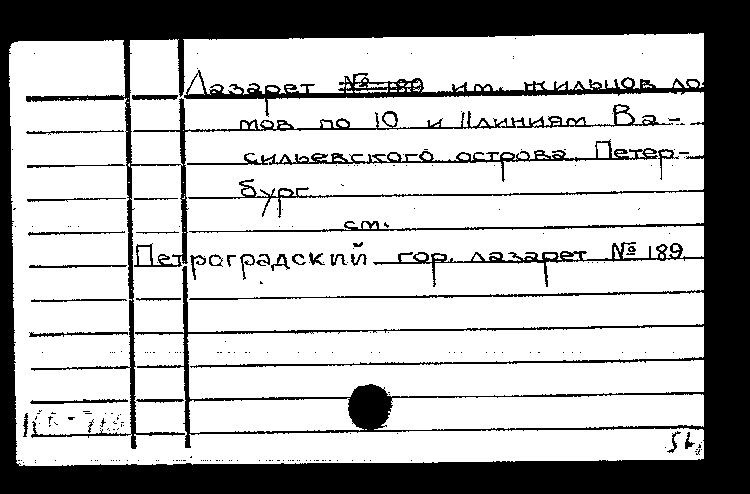 Лазарет № 189 им. жильцов до-
мов по 10 и 11линиям Ва-
сильевского острова Петер-
бург
см.
Петроградский гор. лазарет № 189